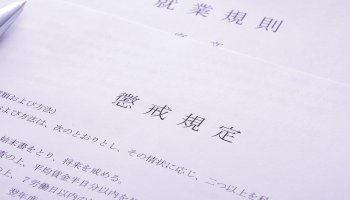 就業規則
懲戒規定
および方法）
よび方法は、次のとおりとし、その情状に応じ、二つ以上を
始末書をとり、将来を戒める。
の上、平均賃金半日分以内を
上、7労働日以内の
翌年